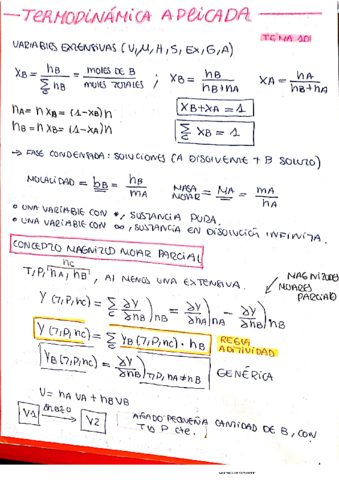 TERMODINÁMICA APLICADA
TEMA 10
VARIABLES EXTENSIVAS (V, U, H, S, Ex, G, A)
XB = nB / Σ nB = MOLES DE B / MOLES TOTALES ; XB = nB / nB+nA XA = nA / nB+nA
nA = n XB = (1-XB)n
XB+XA = 1
nB = n XB = (1-XA)n
Σ XB = 1
→ FASE CONDENSADA: SOLUCIONES (A DISOLVENTE + B SOLUTO)
MOLALIDAD = bB = nB / mA MASA MOLAR = MA = mA / nA
• UNA VARIABLE CON *, SUSTANCIA PURA.
• UNA VARIABLE CON ∞, SUSTANCIA EN DISOLUCIÓN INFINITA.
CONCEPTO MAGNITUD MOLAR PARCIAL
nc
T, P, nA, nB, AL MENOS UNA EXTENSIVA.
MAGNITUDES MOLARES PARCIALES
Y (T, P, nc) = Σ ∂Y/∂nB) nB = ∂Y/∂nA) nA - ∂Y/∂nB) nB
Y (T, P, nc) = Σ YB (T, P, nc) · nB
REGLA ADITIVIDAD
YB (T, P, nc) = ∂Y/∂nB) T, P, nA≠nB
GENÉRICA
V = nA VA + nB VB
V1 → V2
AÑADO PEQUEÑA CANTIDAD DE B, CON
T y P cte.